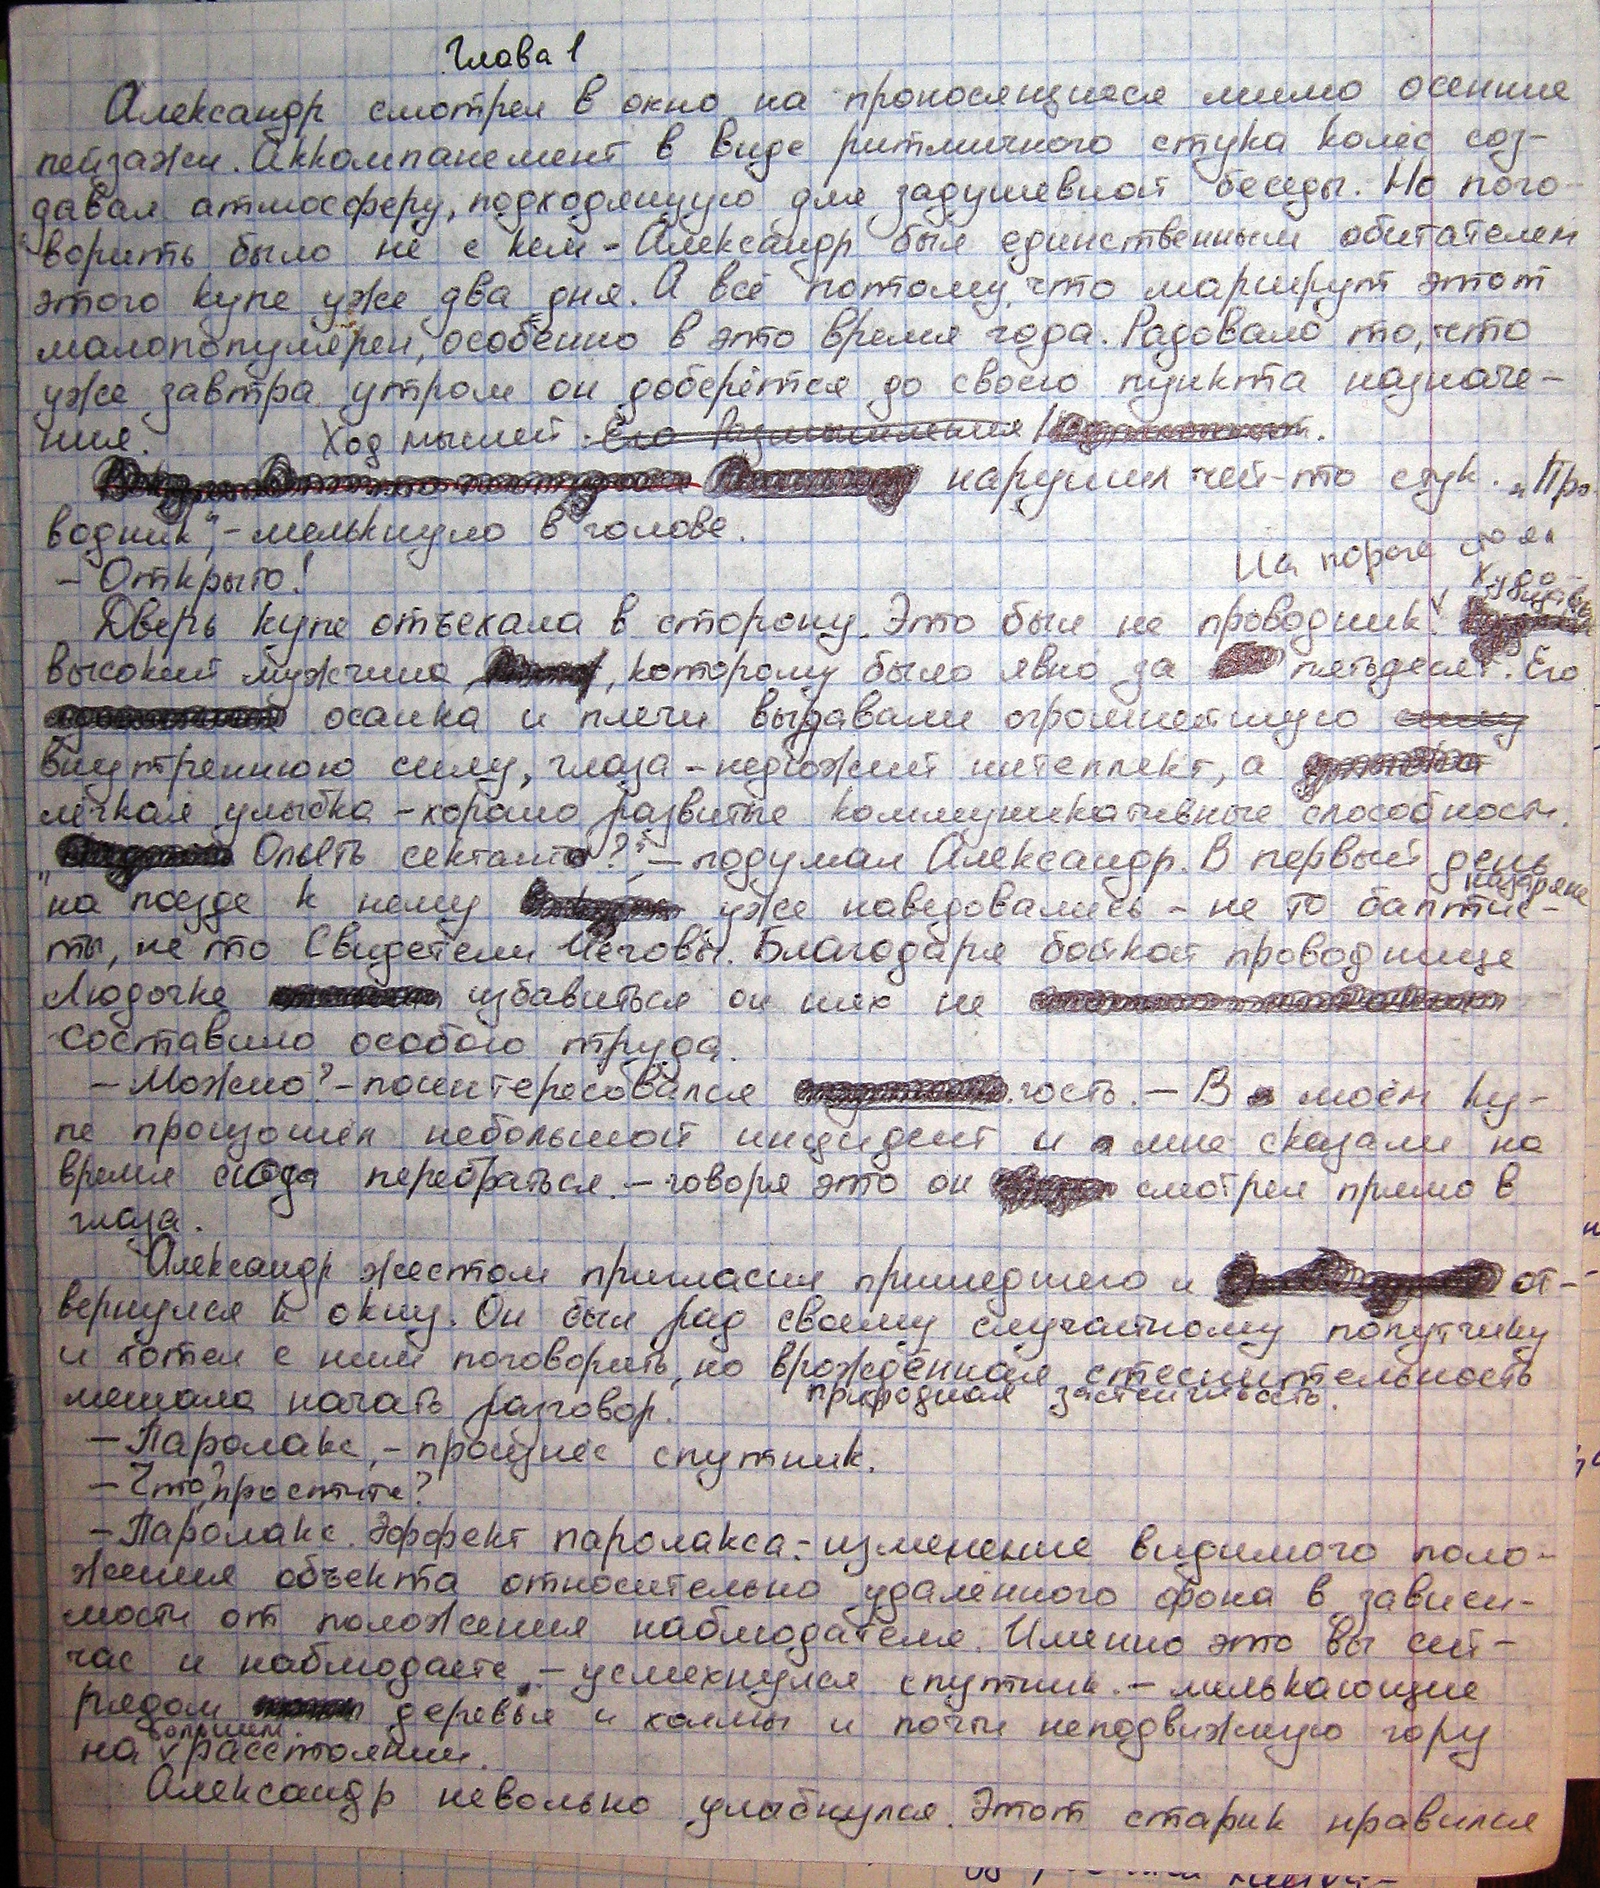 Глава 1
Александр смотрел в окно на проносящиеся мимо осенние
пейзажи. Аккомпанемент в виде ритмичного стука колёс соз-
давал атмосферу, подходящую для задушевной беседы. Но пого-
ворить было не с кем - Александр был единственным обитателем
этого купе уже два дня. А всё потому, что маршрут этот
малопопулярен, особенно в это время года. Радовало то, что
уже завтра утром он доберётся до своего пункта назначе-
ния. Ход мыслей Его размышления
нарушил чей-то стук. „Про-
водник", - мелькнуло в голове.
- Открыто!
На пороге стоял
Дверь купе отъехала в сторону. Это был не проводник.
высокий мужчина, которому было явно за пятьдесят. Его
осанка и плечи выдавали огромнейшую силу
внутреннюю силу, глаза - недюжий интеллект, а
лёгкая улыбка - хорошо развитые коммуникативные способности.
„Опять сектант?" - подумал Александр. В первый день
на поезде к нему уже наведовались - не то баптис-
ты, не то Свидетели Иеговы. Благодаря бойкой проводнице
Людочке избавиться он них не
составило особого труда.
- Можно? - поинтересовался гость. - В моём ку-
пе произошёл небольшой инцидент и мне сказали на
время сюда перебраться. - говоря это он смотрел прямо в
глаза.
Александр жестом пригласил пришедшего и от-
вернулся к окну. Он был рад своему случайному попутчику
и хотел с ним поговорить, но врождённая стеснительность
мешала начать разговор. природная застенчивость.
- Паролакс, - произнёс спутник.
- Что, простите?
- Паролакс. Эффект паролакса - изменение видимого поло-
жения объекта относительно удалённого фона в зависи-
мости от положения наблюдателя. Именно это вы сей-
час и наблюдаете, - усмехнулся спутник. - мелькающие
рядом деревья и холмы и почти неподвижную гору
на большем расстоянии.
Александр невольно улыбнулся. Этот старик нравился